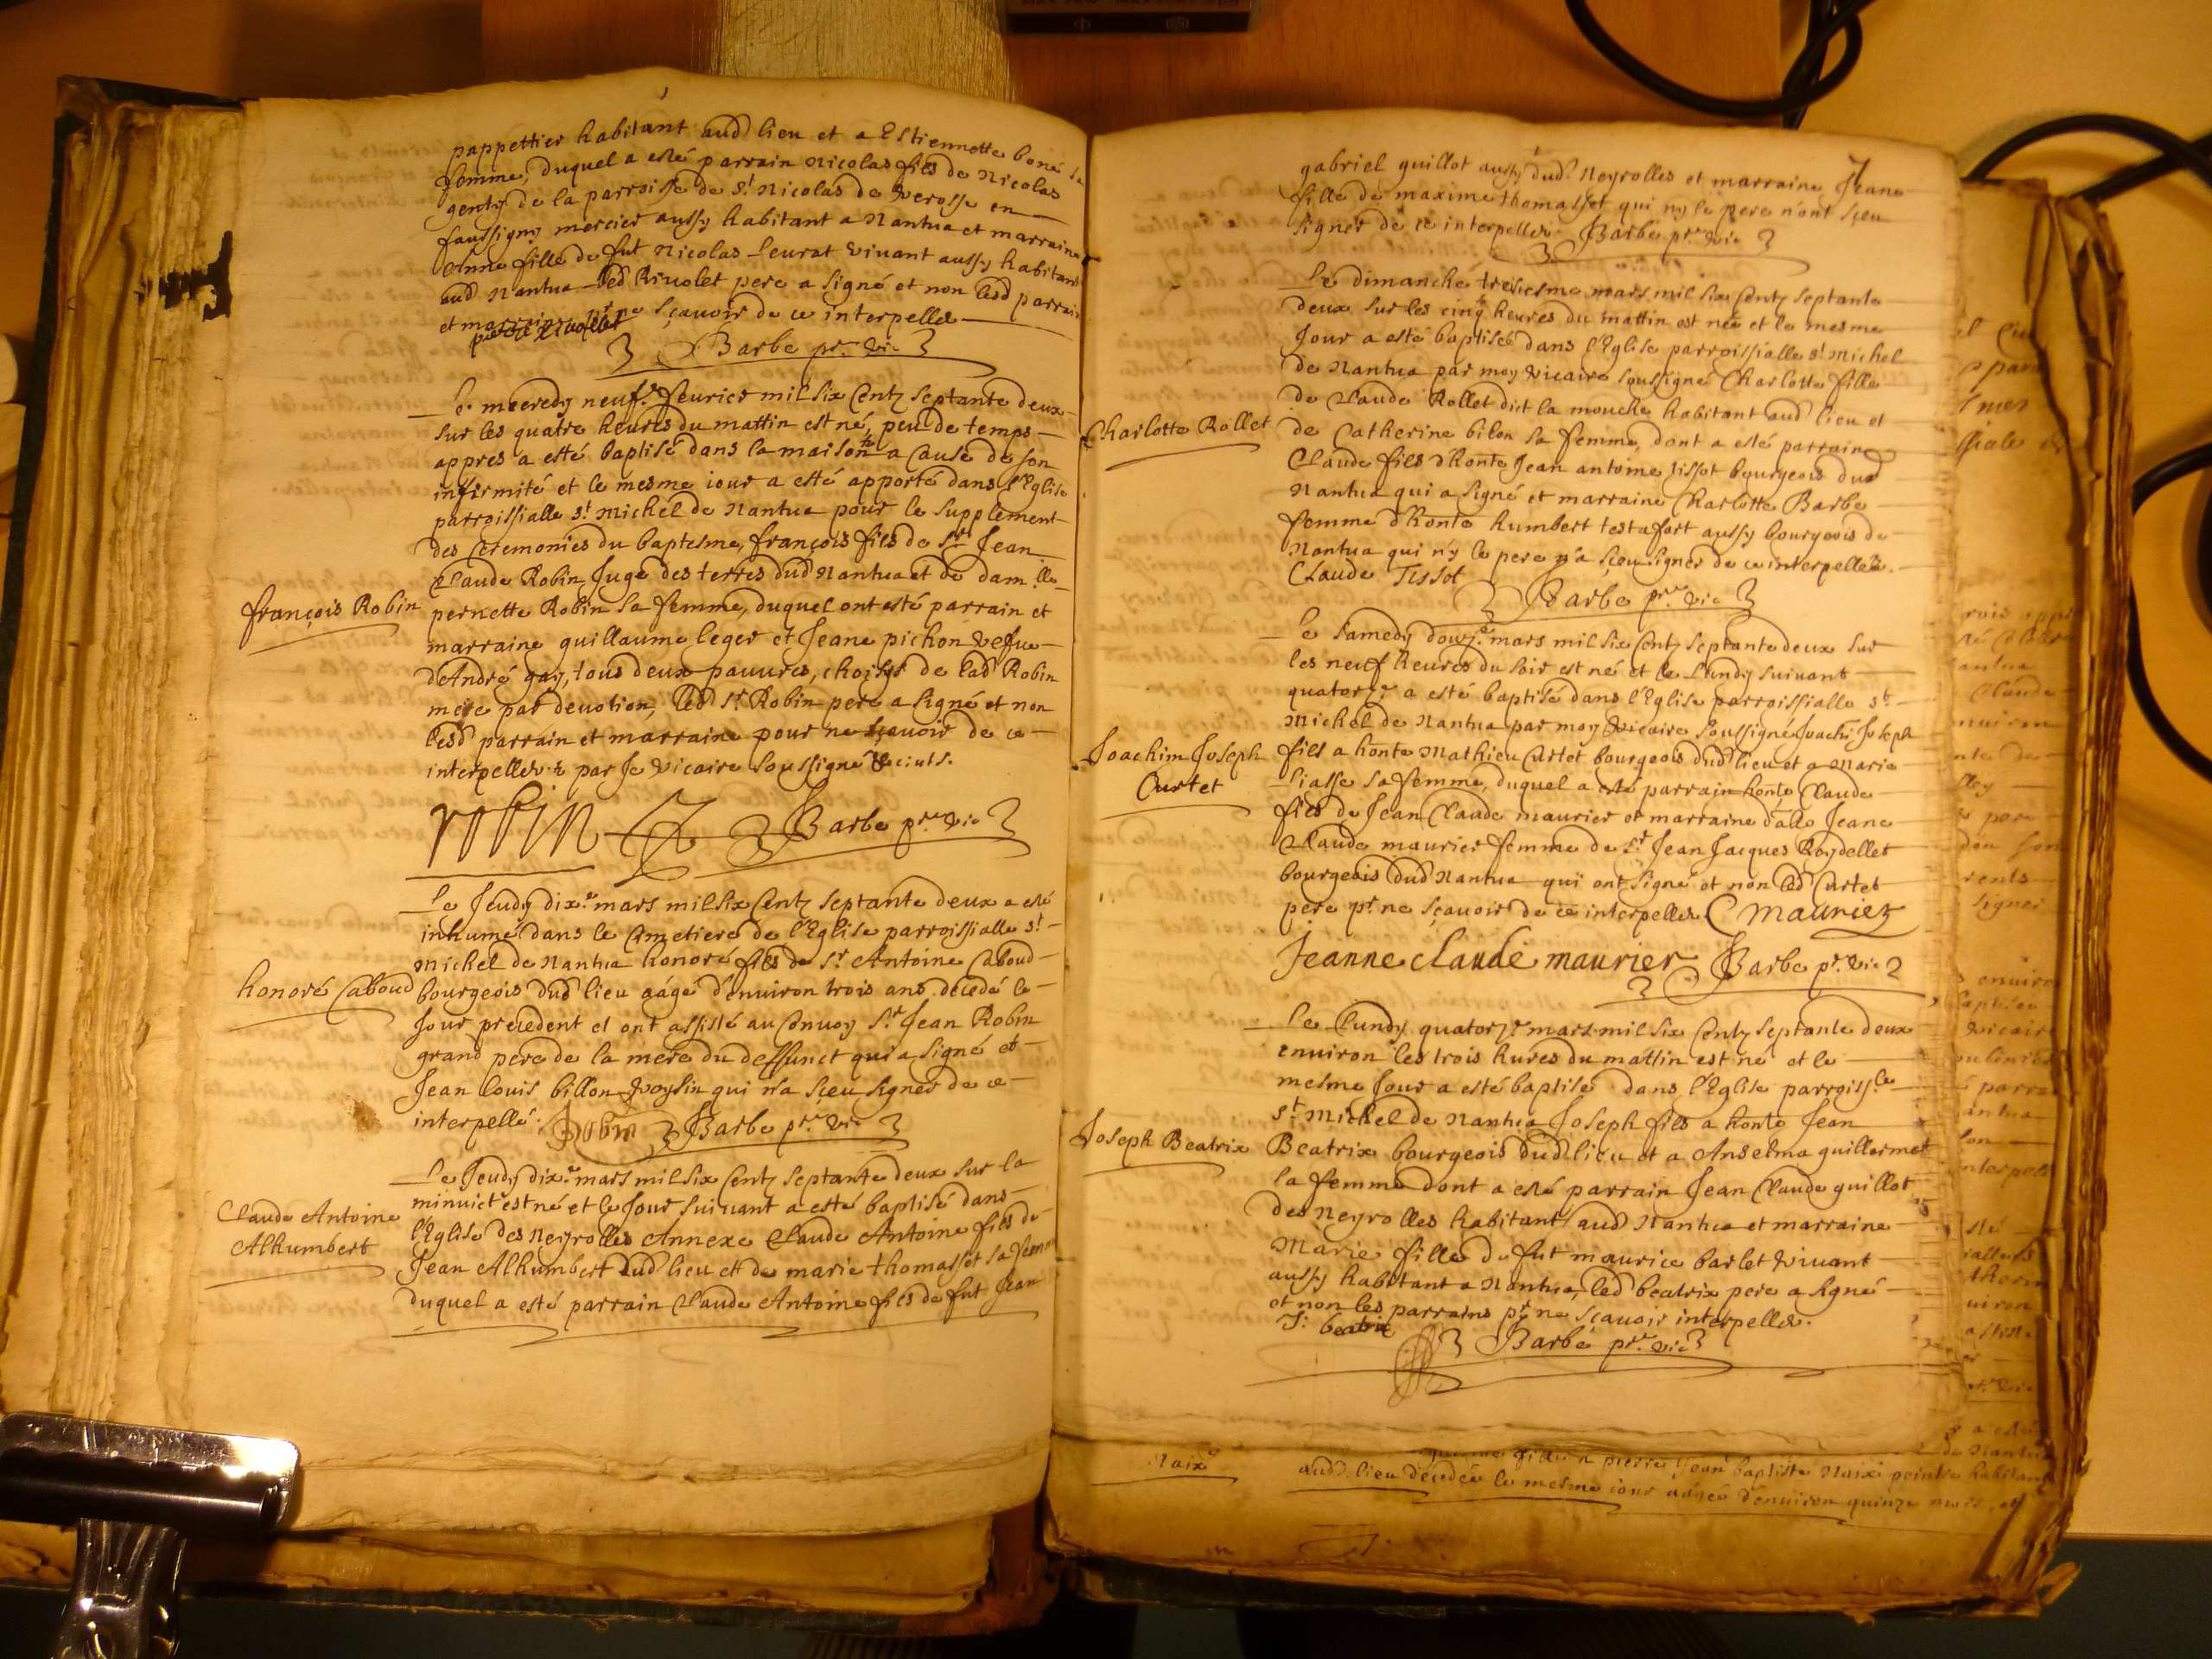 pappettier habitant aud lieu et a Estiennette boné sa
femme, duquel a esté parrain Nicolas fils de Nicolas
genty de la parroisse de St Nicolas de Verosse en
faussigny mercier aussy habitant a Nantua et marraine
Anne fille de fut Nicolas Leurat vivant aussy habitant
aud Nantua led Rivolet pere a signé et non lesd parrain
et marraine pr ne sçavoir de ce interpellés
Barbe pre vic
Le mecredy neufe feurier mil six Centz septante deux
sur les quatre heures du mattin est né, peu de temps
appres a esté baptisé dans la maison a Cause de son
infirmité et le mesme iour a esté apporté dans l'Eglise
parroissialle St Michel de Nantua pour le supplement
des Ceremonies du baptesme, françois fils de Sr Jean
Claude Robin Juge des terres dud Nantua et de dam.lle
françois Robin
pernette Robin sa femme, duquel ont esté parrain et
marraine guillaume leger et Jeane pichon vefue
d'André gay, tous deux pauures, choisys de lad Robin
mere par deuotion, led Sr Robin pere a signé et non
lesd parrain et marraine pour ne sçauoir de ce
interpellés par Je vicaire soussigné
robin Barbe pre vic
Le Jeudy dixe mars mil six Centz septante deux a esté
inhumé dans le Cimetiere de l'Eglise parroissialle St
Michel de Nantua honoré fils de Sr Antoine Caboud
honoré Caboud
bourgeois dud lieu aagé d'enuiron trois ans decedé le
Jour precedent et ont assisté au Conuoy Sr Jean Robin
grand pere de la mere du deffunct qui a signé et
Jean louis billon voysin qui n'a sçeu signer de ce
interpellé. Robin Barbe pre vic
Le Jeudy dixe mars mil six Centz septante deux sur la
minuict est né et le Jour suiuant a esté baptisé dans
Claude Antoine
Alhumbert
l'Eglise des Neyrolles Annexe Claude Antoine fils de
Jean Alhumbert dud lieu et de marie thomasset sa femme
duquel a esté parrain Claude Antoine fils de fut Jean
7
gabriel guillot aussy dud Neyrolles et marraine Jeane
fille de maxime thomasset qui n'y le pere n'ont sçeu
signer de ce interpellés Barbe pre vic
Le dimanche tresiesme mars mil six Centz septante
deux sur les cinq heures du mattin est née et le mesme
Jour a esté baptisée dans l'Eglise parroissialle St Michel
de Nantua par moy vicaire soussigné Charlotte fille
de Claude Rollet dict la mouche habitant aud lieu et
Charlotte Rollet
de Catherine bilon sa femme, dont a esté parrain
Claude fils d'honte Jean antoine tissot bourgeois dud
Nantua qui a signé et marraine Charlotte Barbe
femme d'honte humbert testafort aussy bourgeois de
Nantua qui n'y le pere n'a sçeu signer de ce interpellés.
Claude Tissot
Barbe pre vic
Le samedy douze mars mil six Centz septante deux sur
les neuf heures du soir est né et le Lundy suiuant
quatorze a esté baptisé dans l'Eglise parroissialle St
Michel de Nantua par moy vicaire soussigné Joachi Joseph
Joachim Joseph
Curtet
fils a honte Mathieu Curtet bourgeois dud lieu et a Marie
liasse sa femme, duquel a esté parrain honte Claude
fils de Jean Claude maurier et marraine Jeane
Claude maurier femme de Sr Jean Jacques Roydellet
bourgeois dud Nantua qui ont signé et non led Curtet
pere pr ne sçauoir de ce interpellé C maurier
Jeanne claude maurier Barbe pre vic
Le Lundy quatorze mars mil six Centz septante deux
enuiron les trois hures du mattin est né et le
mesme Jour a esté baptisé dans l'Eglise parroissle
St Michel de Nantua Joseph fils a honte Jean
Joseph Beatrix
Beatrix bourgeois dud lieu et a Anselma guillermet
sa femme dont a esté parrain Jean Claude guillot
des Neyrolles habitant aud Nantua et marraine
Marie fille de fut maurice barlet vivant
aussy habitant a Nantua, led beatrix pere a signé
et non les parrains pr ne sçauoir interpellés.
J: beatrix
Barbe pre vic
Naix
pierre Jean baptiste Naix peintre habitant
aud lieu decedée le mesme iour aagée d'enuiron quinze mois, et